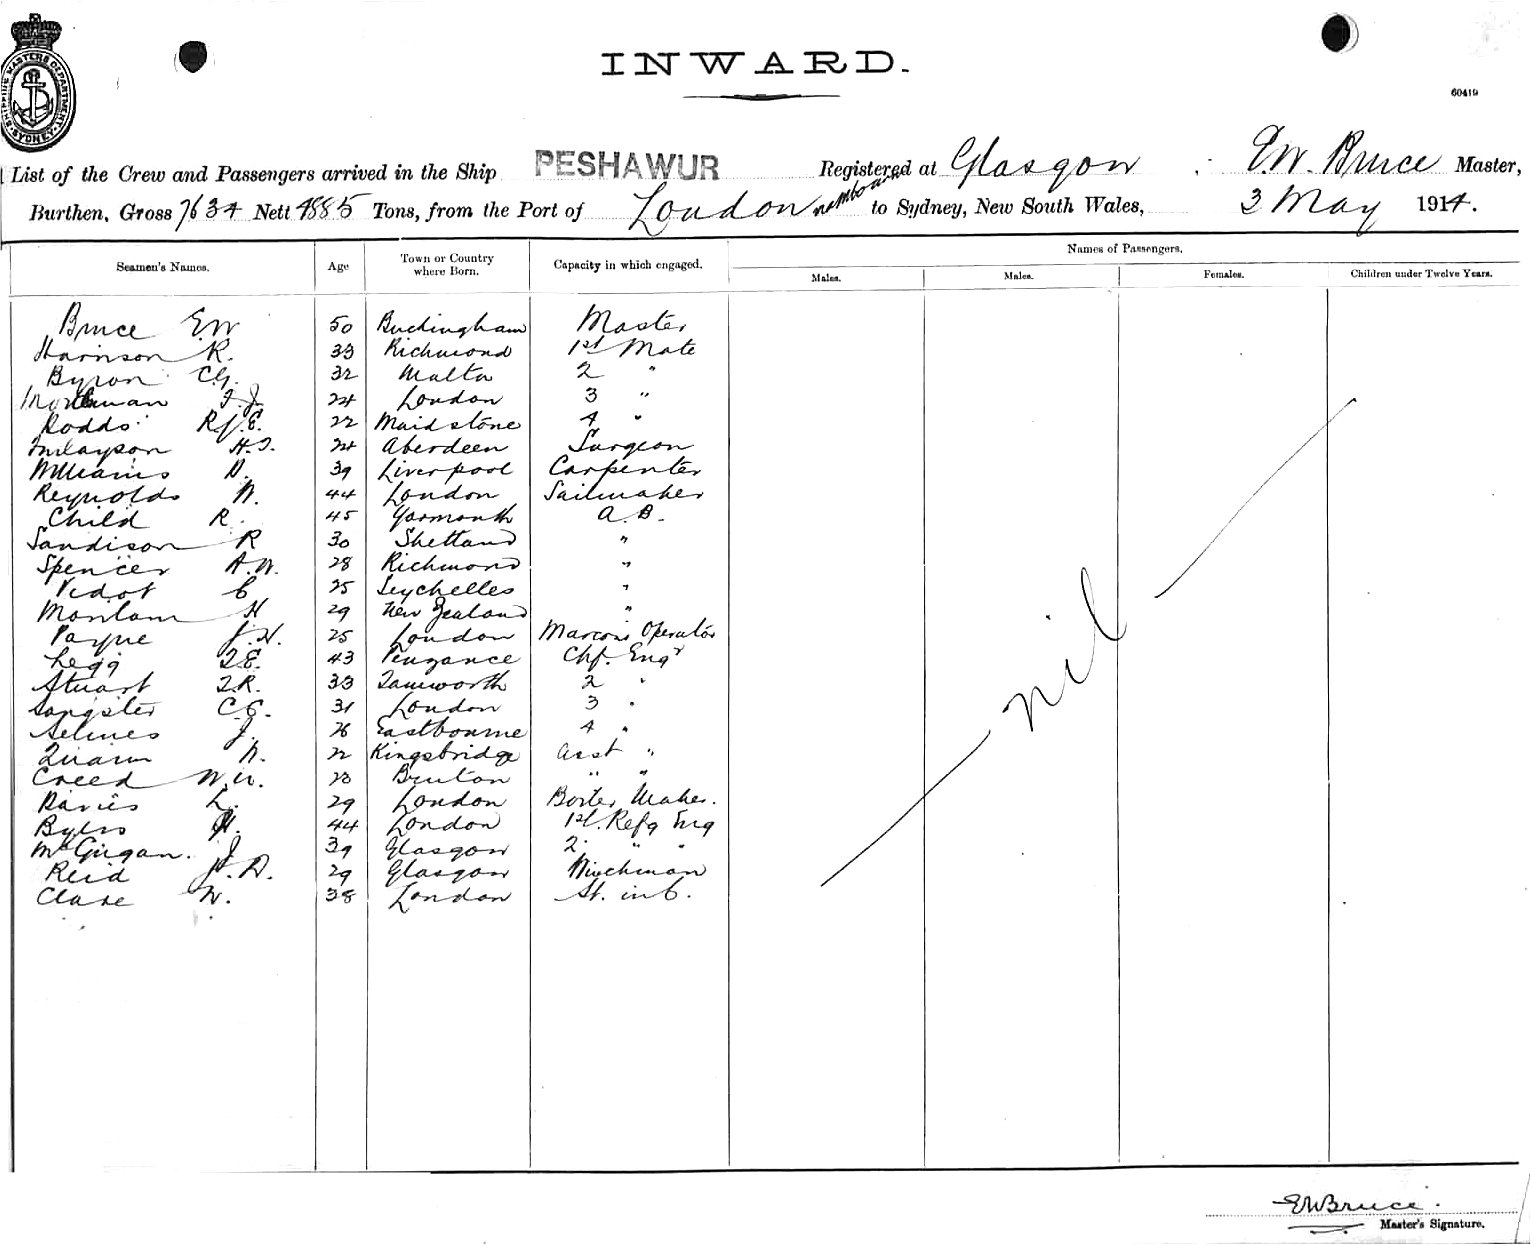 SHIPPING MASTERS DEPARTMENT
SYDNEY
INWARD.
60419
List of the Crew and Passengers arrived in the Ship PESHAWUR Registered at Glasgow E.W. Bruce Master,
Burthen, Gross 7634 Nett 4885 Tons, from the Port of London to Sydney, New South Wales, 3 May 1914.
Names of Passengers.
Seamen's Names. Age Town or Country where Born. Capacity in which engaged. Males. Males. Females. Children under Twelve Years.
Bruce E.W 50 Buckingham Master
Harrison R. 33 Richmond 1st Mate
Byron C.G. 32 Malta 2 "
24 London 3 "
Dodds R.J.E. 22 Maidstone 4 "
Finlayson H.J. 24 Aberdeen Surgeon
Williams D. 39 Liverpool Carpenter
Reynolds W. 44 London Sailmaker
Child R. 45 Yarmouth A.B.
Sandison R 30 Shetland "
Spencer A.W. 28 Richmond "
Vidot C 25 Seychelles "
H 29 New Zealand "
Payne J.H. 25 London Marconi Operator
Legg T.E. 43 Penzance Chf. Engr
Stuart T.R. 33 Tamworth 2 "
Sangster C.E. 31 London 3 "
J. 26 Eastbourne 4 "
N. 22 Kingsbridge Asst "
Creed W.W. 23 Bruton " "
Davies L. 29 London Boiler Maker.
H. 44 London 1st. Refg Eng
McGuigan. J 39 Glasgow 2. " "
Reid J.D. 29 Glasgow Winchman
Clare W. 38 London St. in C.
nil
EWBruce.
Master's Signature.